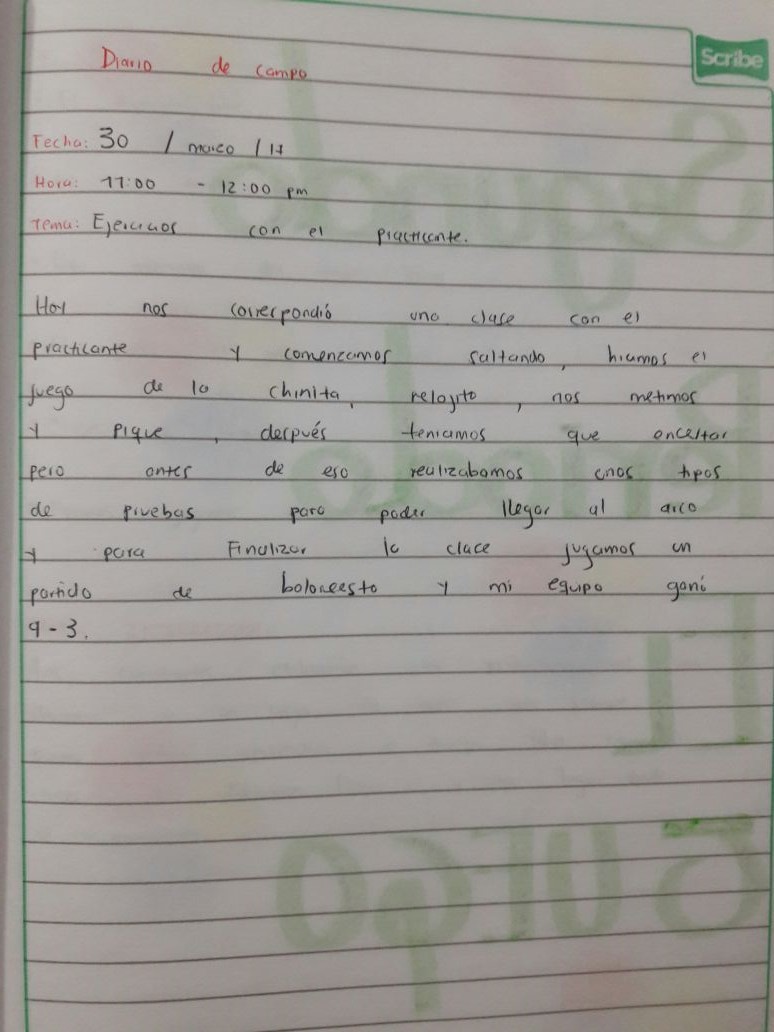 Scribe
Diario de campo
Fecha: 30 / marzo / 17
Hora: 11:00 - 12:00 pm
Tema: Ejercicios con el practicante.
Hoy nos correspondió una clase con el
practicante y comenzamos saltando, hicimos el
juego de la chinita, relojito, nos metimos
y pique, después teniamos que encestar
pero antes de eso realizabamos unos tipos
de pruebas para poder llegar al arco
y para Finalizar la clace jugamos un
partido de baloncesto y mi equipo ganó
9 - 3.